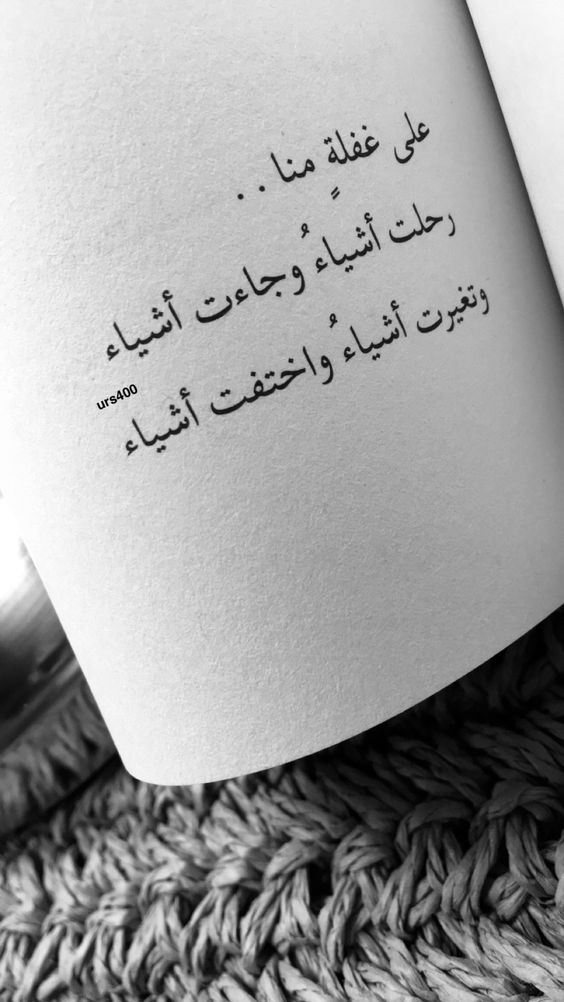 على غفلةٍ منا . .
رحلت أشياءُ وجاءت أشياء
وتغيرت أشياءُ واختفت أشياء
urs400